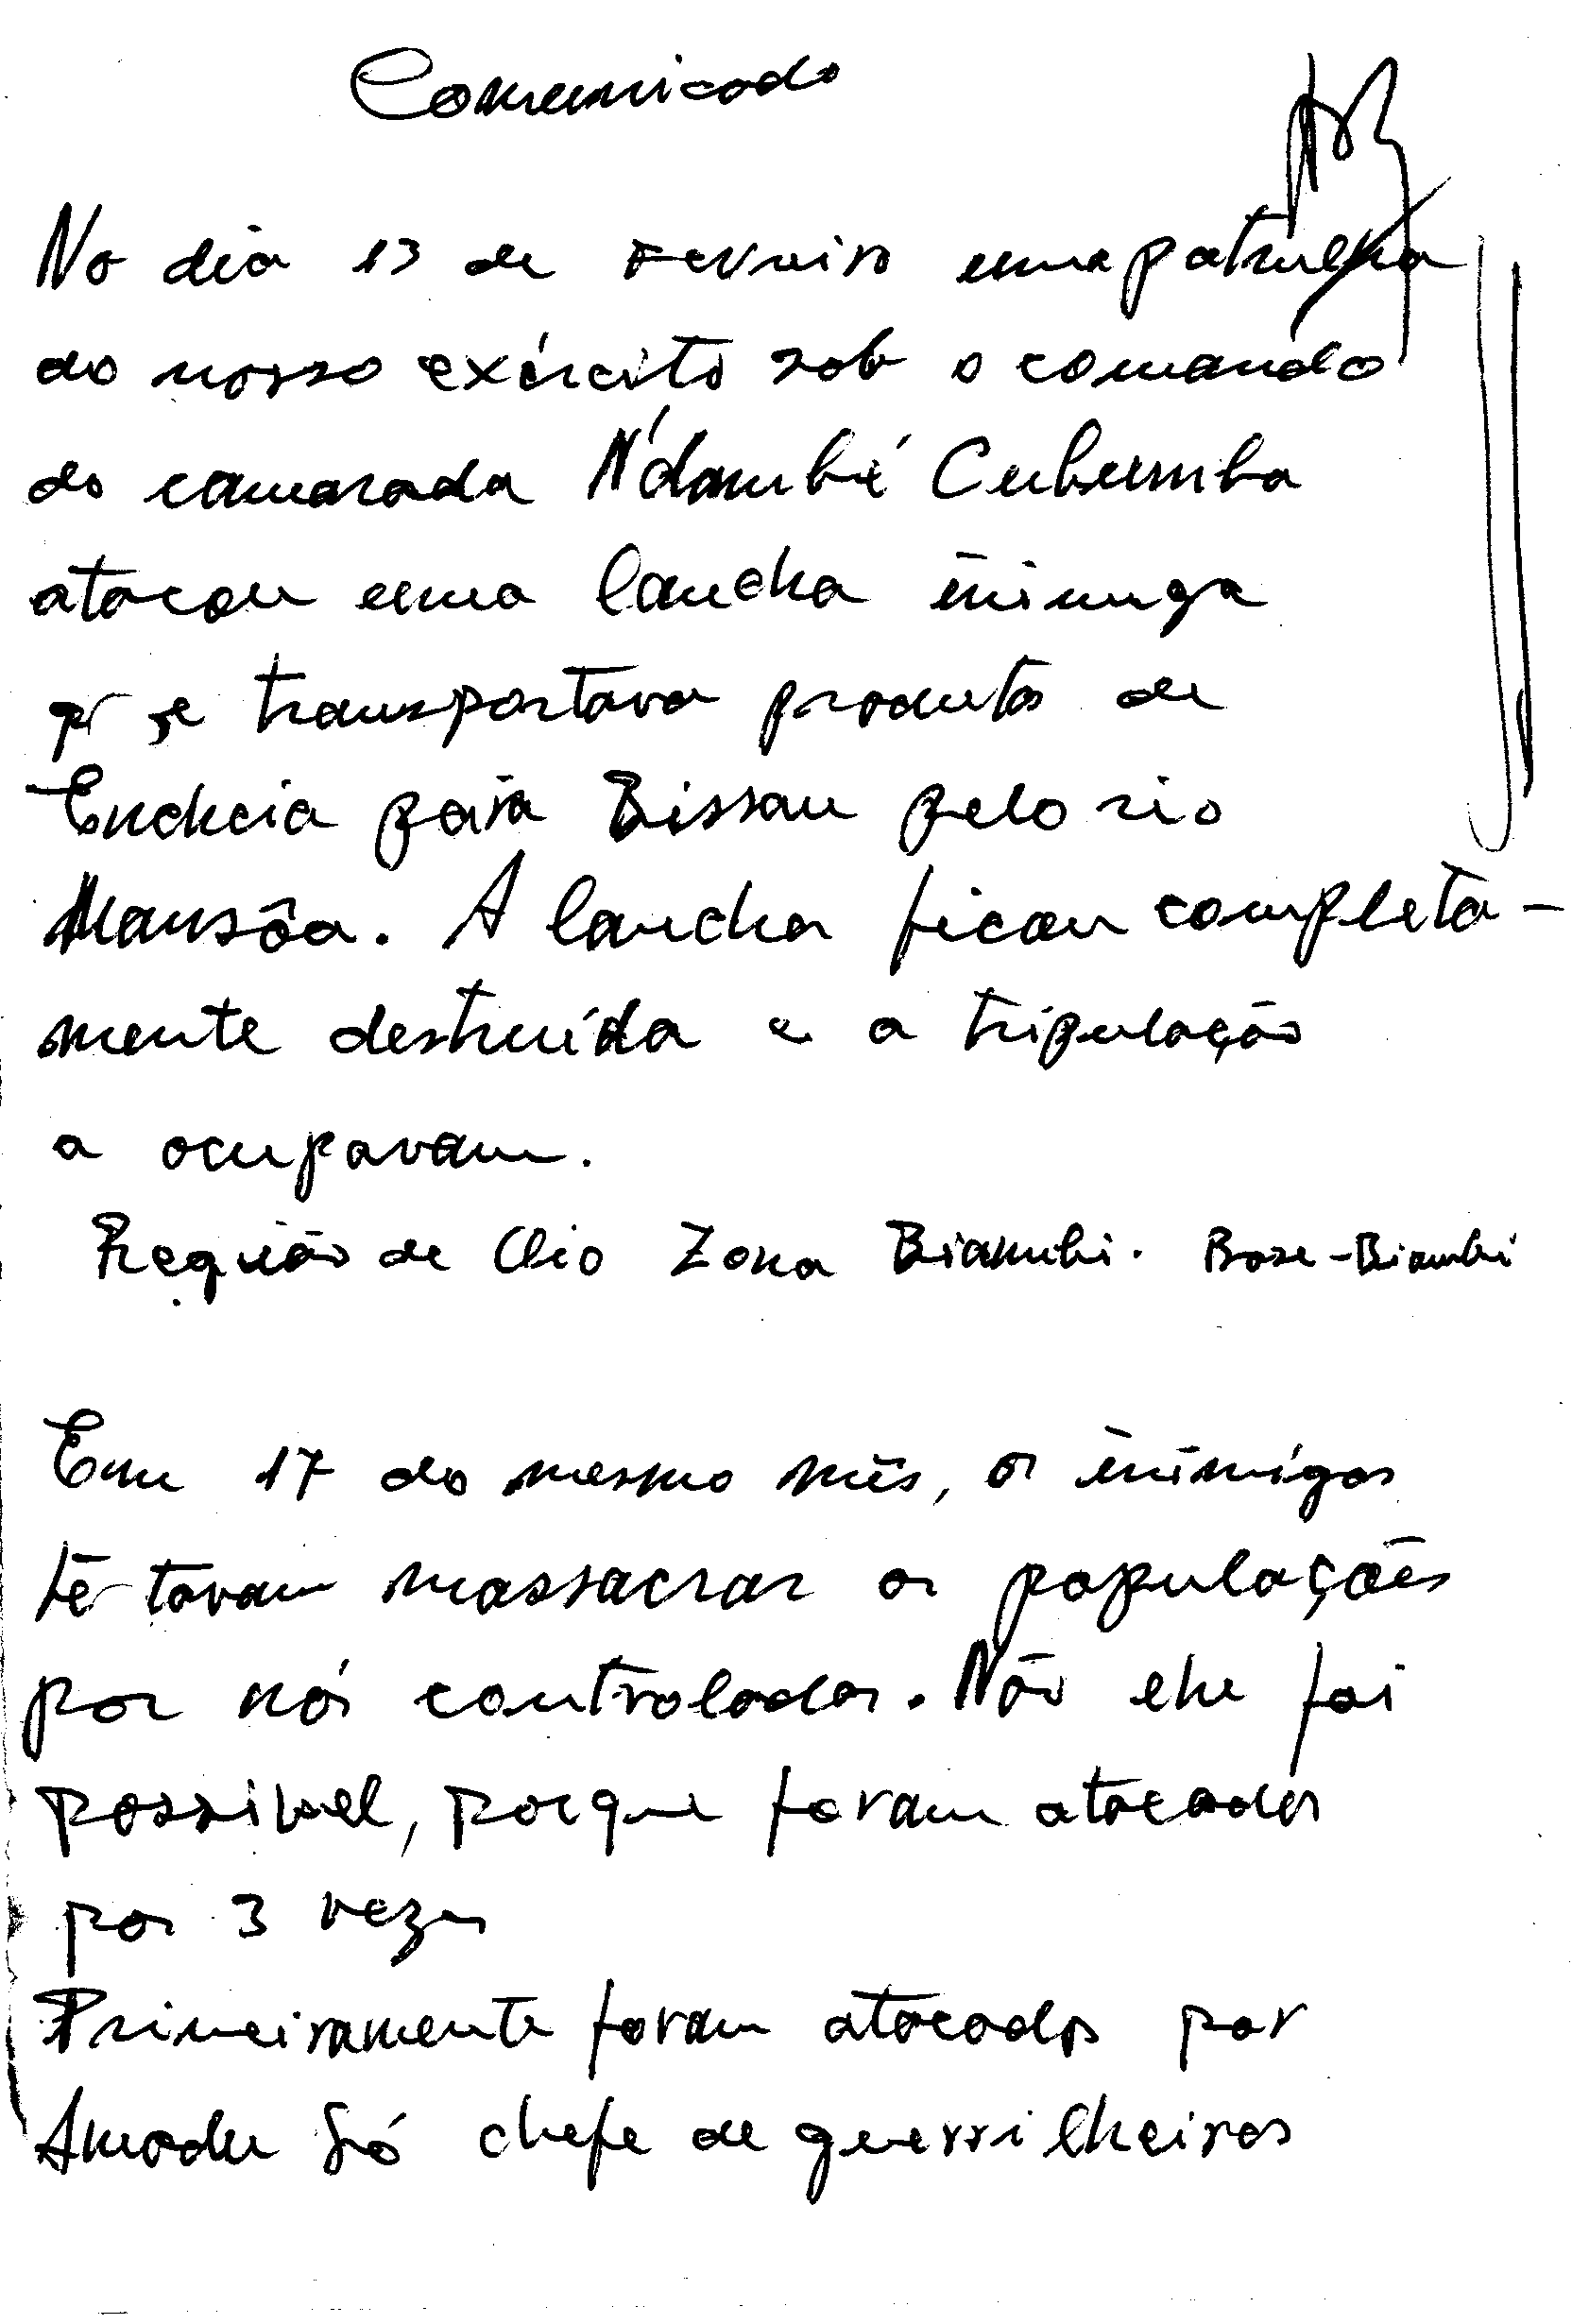 Comunicado
No dia 13 de Fevreiro uma patrulha
do nosso exército sob o comando
do camarada N'dambé Cubumba
atacou uma lancha inimiga
q' se transportava produtos de
Encheia para Bissau pelo rio
Mansôa. A lancha ficou completa-
mente destruída e a tripulação
a ocupavam.
Região de Oio Zona Biambi. Base-Biambi
Em 17 do mesmo mês, os inimigos
tētavam massacrar as populações
por nós controladas. Não lhe foi
possivel, porque foram atacados
por 3 vezes
Primeiramente foram atacados por
Amadu Só chefe de guerrilheiros